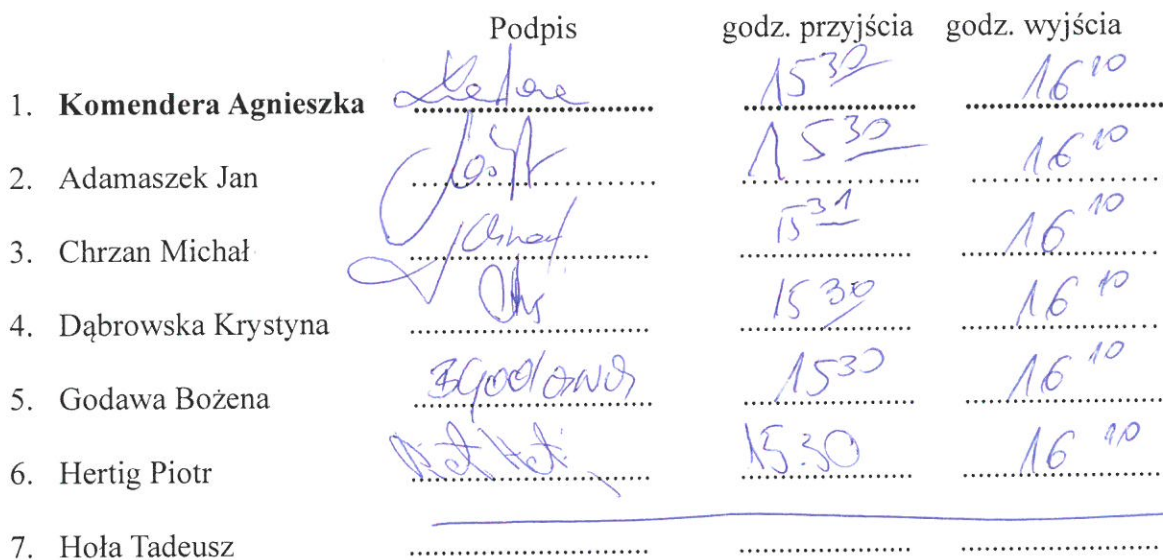 Podpis godz. przyjścia godz. wyjścia
1. Komendera Agnieszka 15 30 16 10
2. Adamaszek Jan 15 30 16 10
3. Chrzan Michał 15 31 16 10
4. Dąbrowska Krystyna 15 30 16 10
5. Godawa Bożena BGodawa 15 30 16 10
6. Hertig Piotr 15.30 16 10
7. Hoła Tadeusz